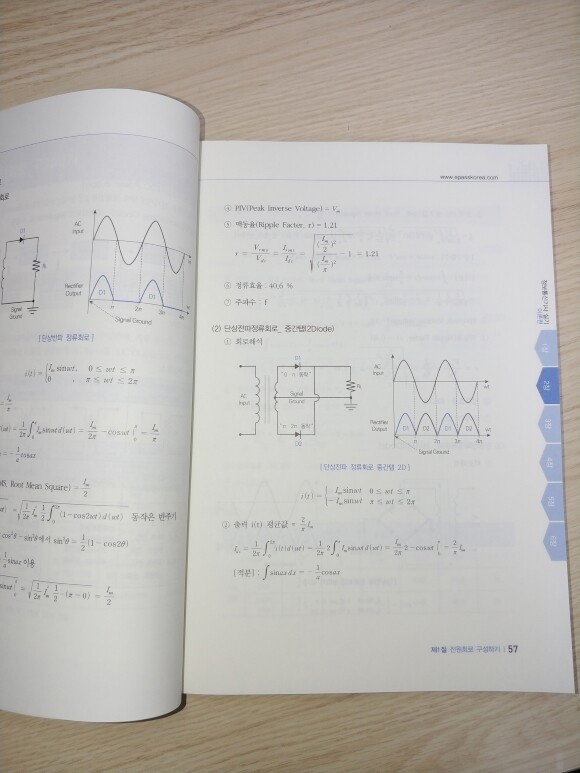 로
D1
R
Signal
Ground
AC
Input
Rectifier
Output
D1
D1
π
2π
3π
4π
Signal Ground
[단상전파 정류회로]
i(t) = { I_m sinωt, 0 ≤ wt ≤ π
0 , π ≤ wt ≤ 2π
I_m/π
(wt) = 1/2π ∫₀^π I_m sinωtd(wt) = I_m/2π −cosωt |₀^π = I_m/π
= −1/a cosax
MS, Root Mean Square) = I_m/2
= √(1/2π I_m² 1/2 ∫₀^2π (1−cos2wt)d(wt) 동작은 반주기
cos²θ−sin²θ에서 sin²θ = 1/2(1−cos2θ)
1/a sinax 이용
= √(1/2π I_m² 1/2 · (π−0) = I_m/2
www.epasskorea.com
④ PIV(Peak Inverse Voltage) = V_m
⑤ 맥동율(Ripple Facter, r) = 1.21
⑥ 정류효율 : 40.6 %
⑦ 주파수 : f
(2) 단상전파정류회로_ 중간탭(2Diode)
① 회로해석
AC
Input
D1
Signal
Ground
D2
R
AC
Input
wt
Rectifier
Output
D1
D2
D1
D2
wt
π
2π
3π
4π
Signal Ground
[단상전파 정류회로 중간탭 2D]
i(t) = { I_m sinωt 0 ≤ wt ≤ π
−I_m sinωt π ≤ wt ≤ 2π
② 출력 i(t) 평균값 = 2/π I_m
I_dc = 1/2π ∫₀^2π i(t)d(wt) = 1/2π 2∫₀^π I_m sinωtd(wt) = I_m/2π 2−cosωt |₀^π = 2/π I_m
[적분] : ∫sinaxdx = −1/a cosax
1장
2장
3장
4장
5장
6장
제1절 전원회로 구성하기 | 57